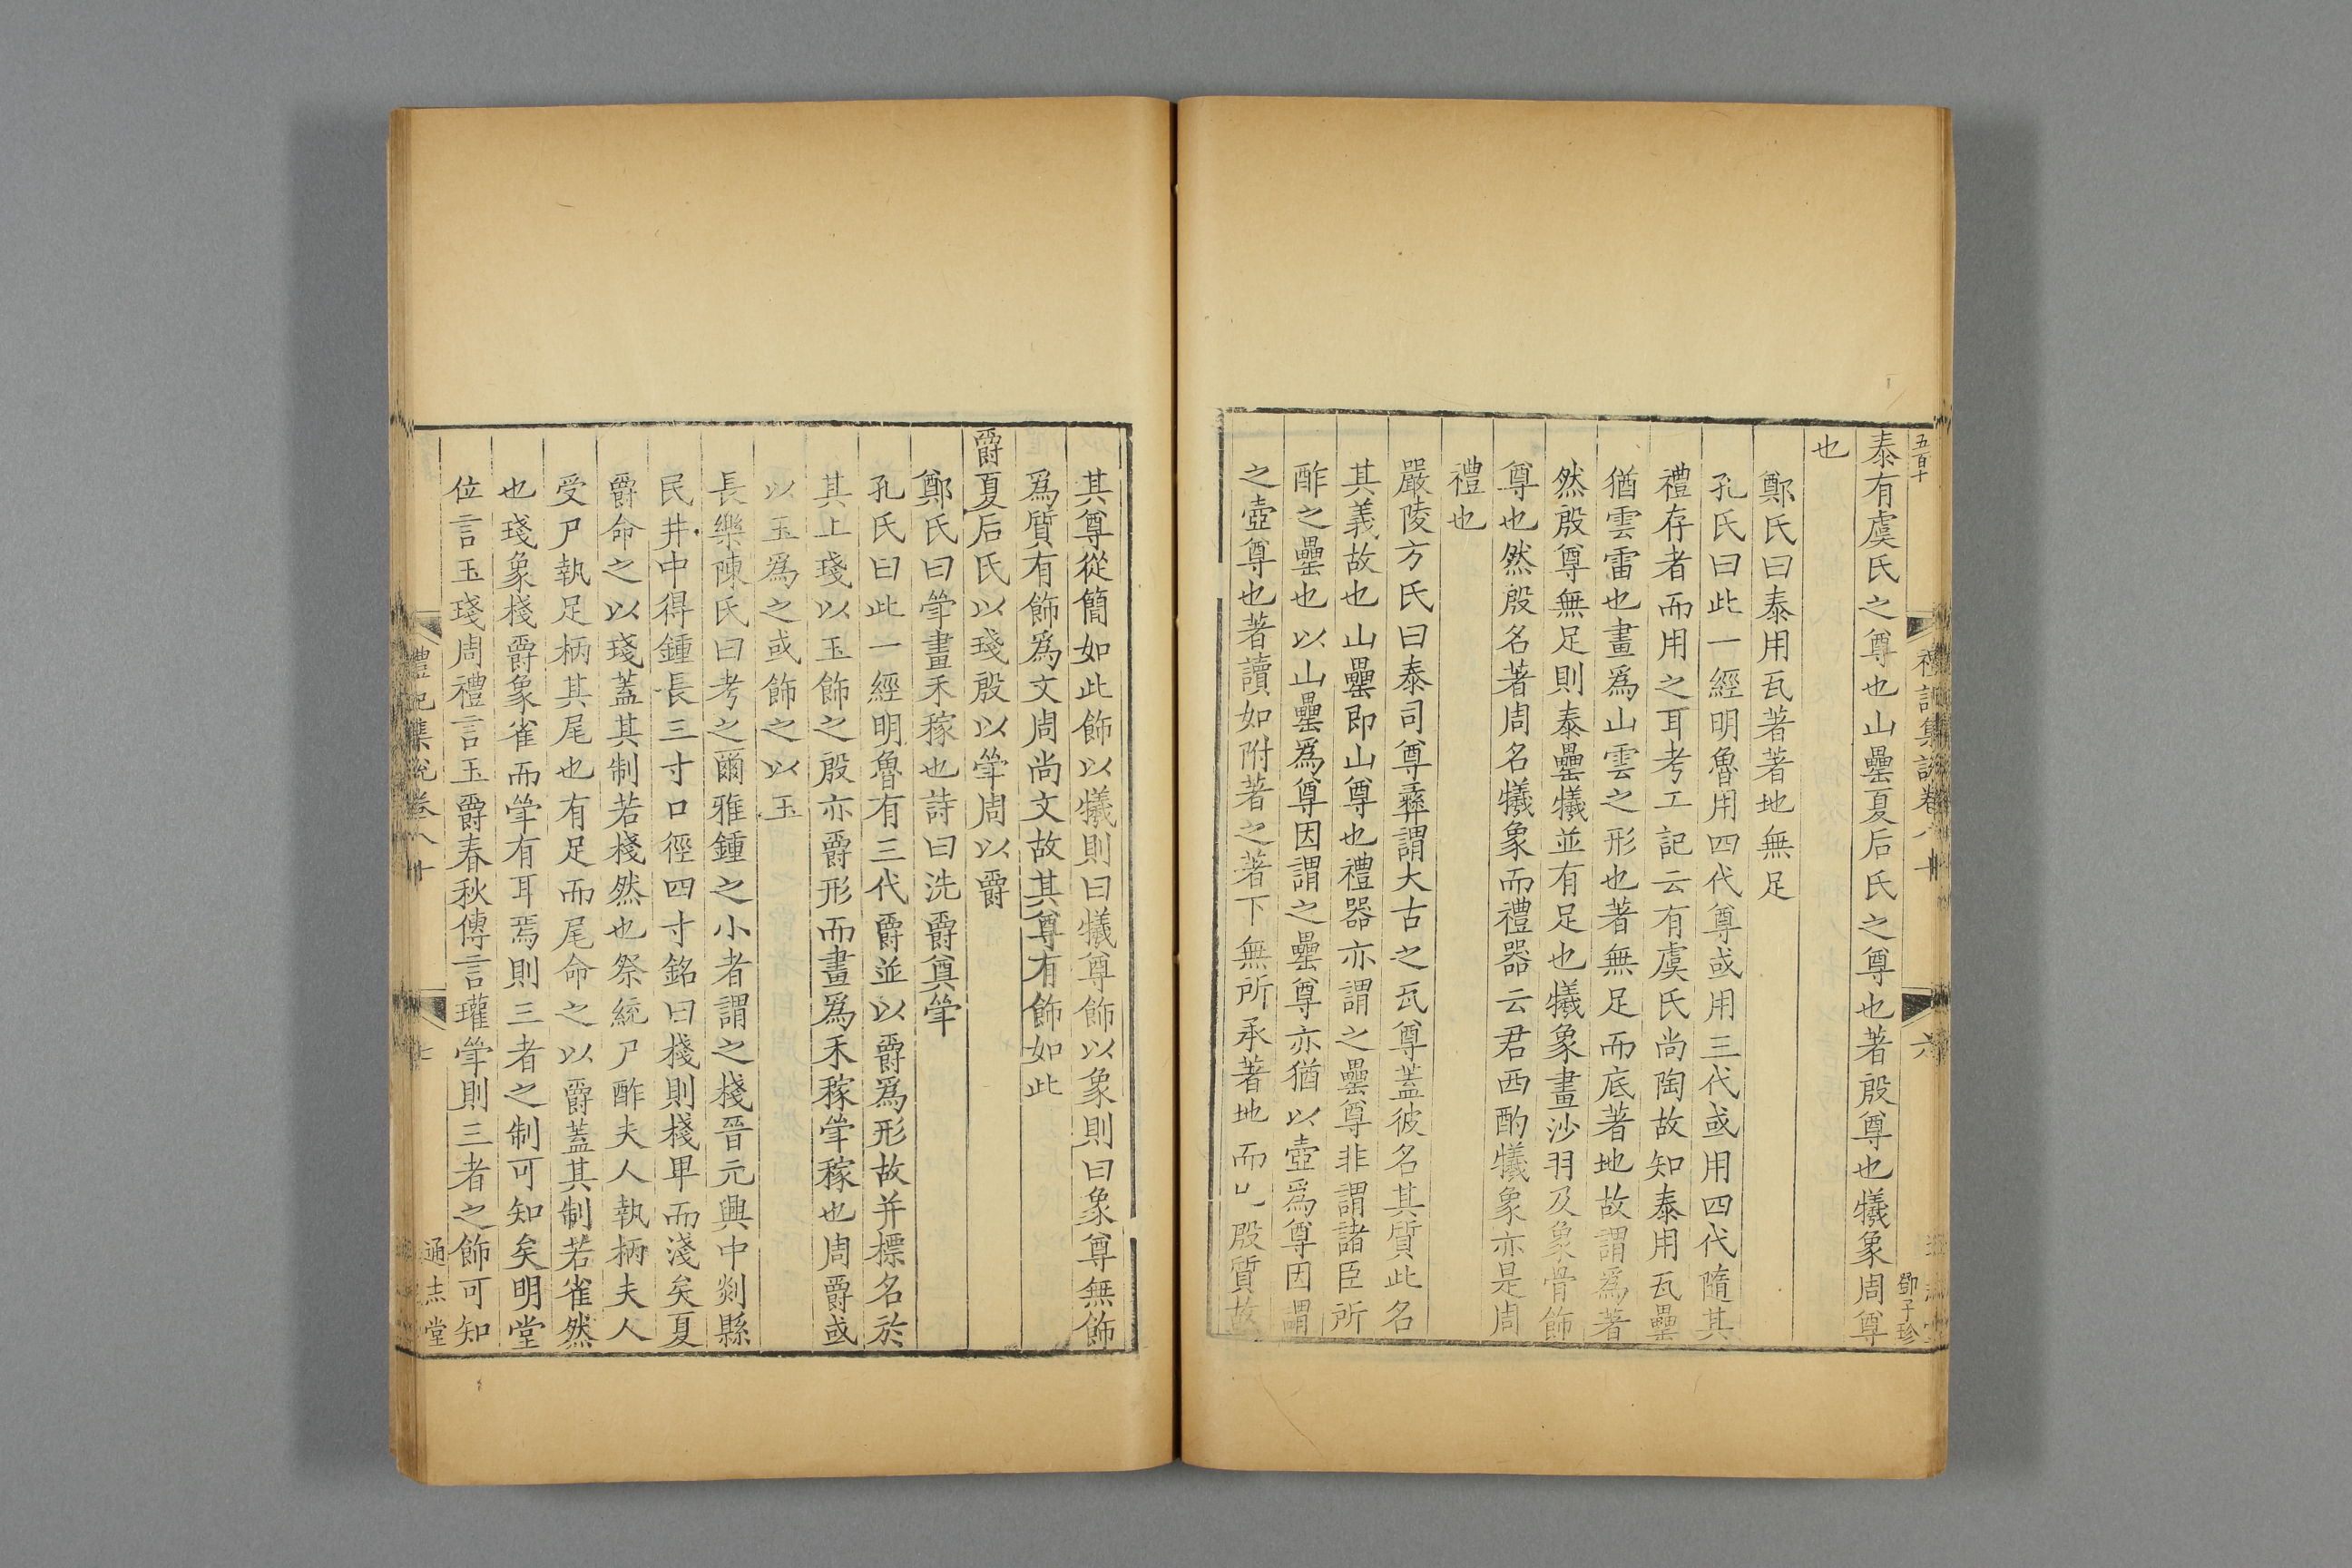 五百十
泰有虞氏之尊也山罍夏后氏之尊也著殷尊也犧象周尊
也
鄭氏曰泰用瓦著著地無足
孔氏曰此一經明魯用四代尊或用三代或用四代隨其
禮存者而用之耳考工記云有虞氏尚陶故知泰用瓦罍
猶雲雷也畫爲山雲之形也著無足而底著地故謂爲著
然殷尊無足則泰罍犧並有足也犧象畫沙羽及象骨飾
尊也然殷名著周名犧象而禮器云君西酌犧象亦是周
禮也
嚴陵方氏曰泰司尊彝謂大古之瓦尊蓋彼名其質此名
其義故也山罍即山尊也禮器亦謂之罍尊非謂諸臣所
酢之罍也以山罍爲尊因謂之罍尊亦猶以壺爲尊因謂
之壺尊也著讀如附著之著下無所承著地而已殷質故
禮記集說卷八十
六
鄧子珍
其尊從簡如此飾以犧則曰犧尊飾以象則曰象尊無飾
爲質有飾爲文周尚文故其尊有飾如此
爵夏后氏以琖殷以斝周以爵
鄭氏曰斝畫禾稼也詩曰洗爵奠斝
孔氏曰此一經明魯有三代爵並以爵爲形故并標名於
其上琖以玉飾之殷亦爵形而畫爲禾稼斝稼也周爵或
以玉爲之或飾之以玉
長樂陳氏曰考之爾雅鍾之小者謂之棧晉元興中剡縣
民井中得鍾長三寸口徑四寸銘曰棧則棧卑而淺矣夏
爵命之以琖蓋其制若棧然也祭統尸酢夫人執柄夫人
受尸執足柄其尾也有足而尾命之以爵蓋其制若雀然
也琖象棧爵象雀而斝有耳焉則三者之制可知矣明堂
位言玉琖周禮言玉爵春秋傳言瓘斝則三者之飾可知
禮記集說卷八十
七
通志堂